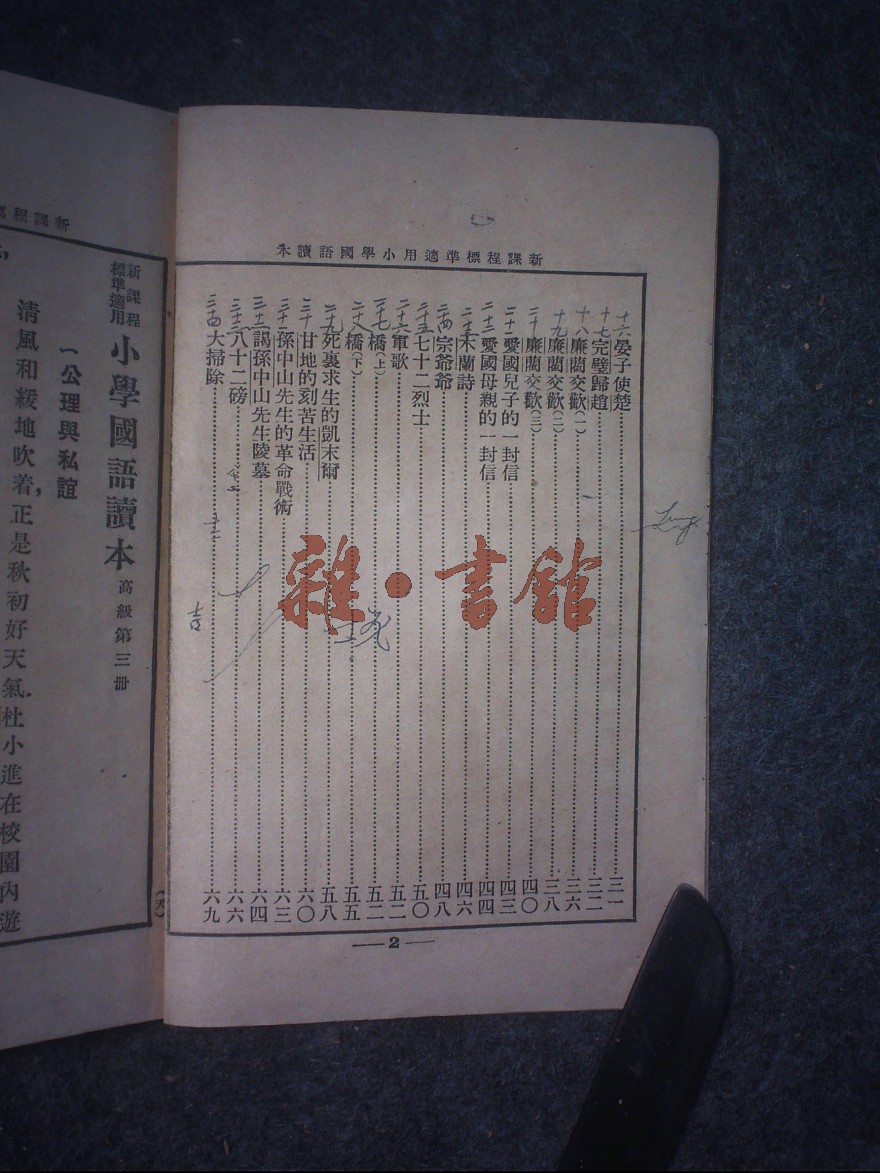 新課程標準適用小學國語讀本
十六 晏子使楚 三一
十七 完璧歸趙 三二
十八 廉藺交歡(一) 三六
十九 廉藺交歡(二) 三八
二十 廉藺交歡(三) 四〇
二十一 愛國兒子的一封信 四三
二十二 愛國母親的一封信 四四
二十三 木蘭詩 四六
二十四 宗爺爺 四八
二十五 七十二烈士 五〇
二十六 軍歌 五二
二十七 橋(上) 五二
二十八 橋(下) 五五
二十九 死裏求生的凱末爾 五八
三十 甘地的刻苦生活 六〇
三十一 孫中山先生的革命戰術 六三
三十二 謁孫中山先生陵墓 六四
三十三 八十二磅 六六
三十四 大掃除 六九
2
雜·書館
吉
新課程
新課程標準適用 小學國語讀本 高級第三冊
一 公理與私誼
清風和緩地吹着,正是秋初好天氣.杜小進在校園內遊